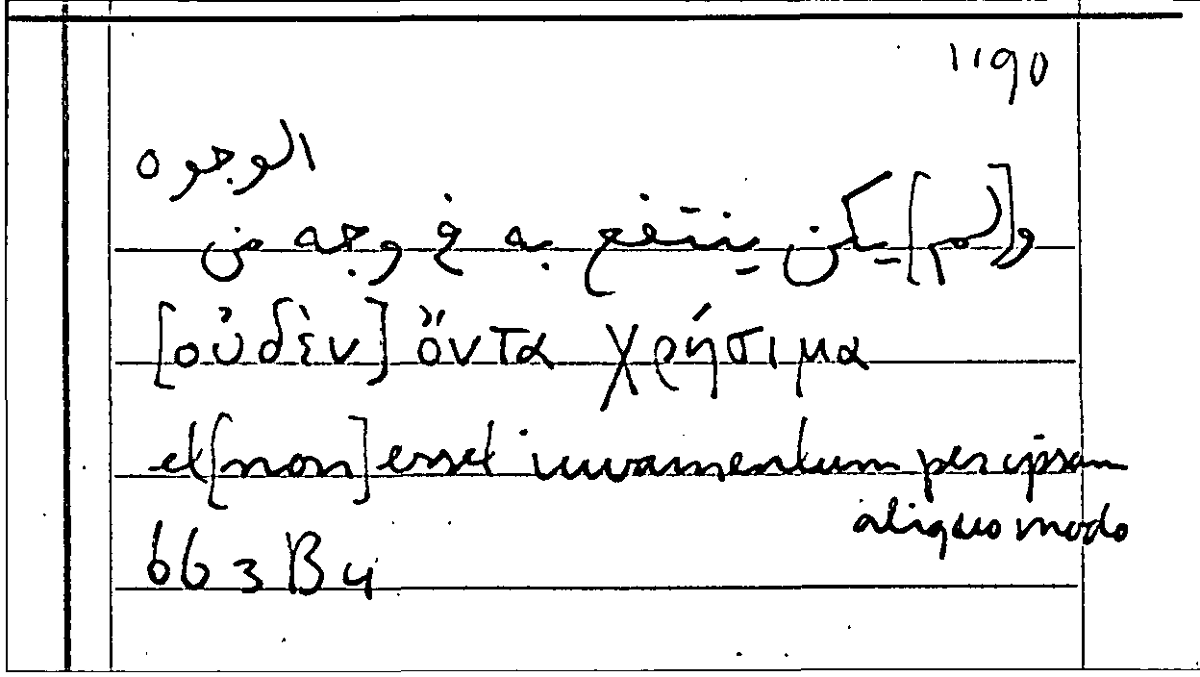 1190
الوجوه
و[لم] يكن ينتفع به في وجه من
[οὐδὲν] ὄντα χρήσιμα
et [non] esset iuvamentum per ipsam
aliquo modo
663 B 4